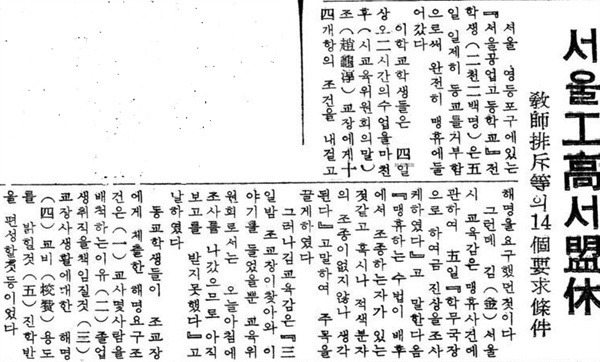 서울工高서盟休
敎師排斥等의14個要求條件
서울、영등포구에있는
『서울공업고등학교』전
학생(二천二백명)은五
일 일제히 등교를거부함
으로써 완전히 맹휴에들
어갔다
이학교학생들은 四일
상오二시간의수업을마친
후(시교육위원회의말)
조(趙龜淳)교장에게十
四개항의 조건을 내걸고
해명을요구했던것이다
그런데 김(金)서울
시 교육감은 맹휴사건에
관하여 五일『학무국장
으로 하여금 진상을조사
케하였다』고 말한다음
『맹휴하는 수법이 배후
에서 조종하는자가 있는
것같고 혹시나 적색분자
의 조종이없지않나 생각
된다』고말하여 주목을
끌게하였다
그러나김교육감은『三
일밤 조교장이찾아와 이
야기를 들었을뿐 교육위
원회로서는 오늘아침에
조사를 나갔으므로 아직
보고를 받지못했다』고
말하였다
동교학생들이 조교장
에게 제출한 해명요구조
건은(一)교사몇사람을
배척하는이유(二)졸업
생취직을책임질것(三)
교장사생활에대한 해명
(四)교비(校費)용도
를 밝힐것(五)진학반
을 편성할것등이었다